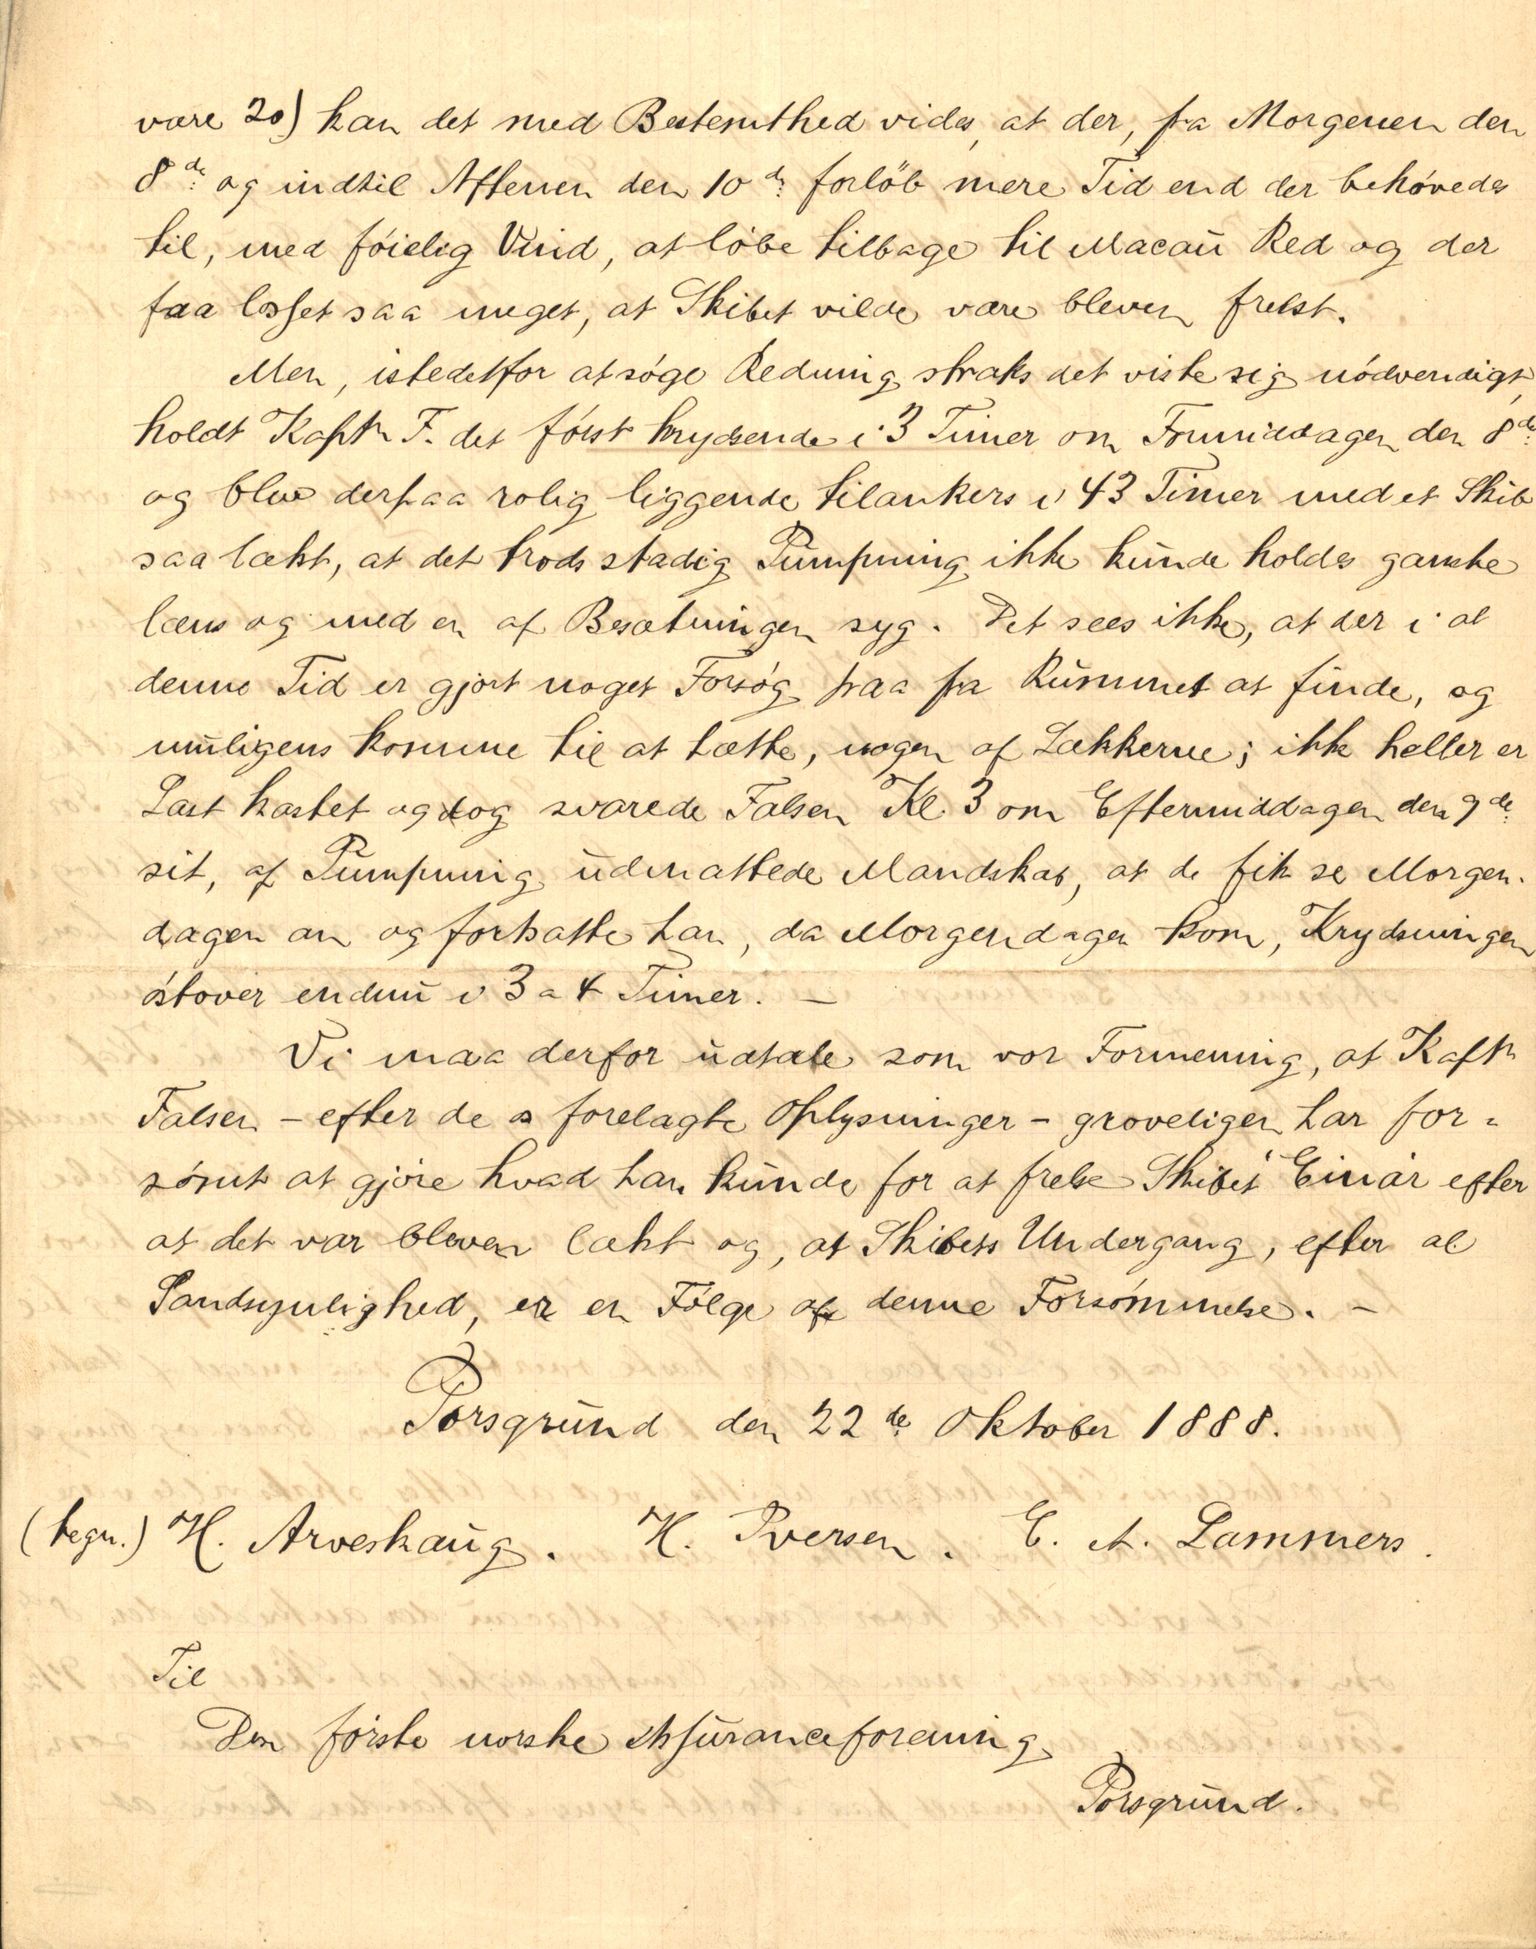 være 20) kan det med Bestemthed vides, at der, fra Morgenen den
8de og indtil Aftenen den 10de forløb mere Tid end der behøvedes
til, med føielig Vind, at løbe tilbage til Macau Red og der
faa losset saa meget, at Skibet vilde være bleven frelst.
Men, istedetfor at søge Redning straks det viste sig nödvendigt,
holdt Kaptn F. det först krydsende i 3 Timer om Formiddagen den 8de
og blev derpaa rolig liggende tilankers i 43 Timer med et Skib
saa lækt, at det trods stadig Pumpning ikke kunde holdes ganske
læns og med en af Besætningen syg. Det sees ikke, at der i al
denne Tid er gjort noget Forsøg paa fra Rummet at finde, og
muligens komme til at tætte, nogen af Lækkerne; ikke heller er
Last kastet og dog svarede Falsen Kl. 3 om Eftermiddagen den 9de
sit, af Pumpning udmattede Mandskab, at de fik se Morgen-
dagen an og fortsatte han, da Morgendagen kom, Krydsningen
østover endnu i 3 a 4 Timer. —
Vi maa derfor udtale som vor Formening, at Kaptn
Falsen – efter de os forelagte Oplysninger – groveligen har for-
sømt at gjøre hvad han kunde for at frelse Skibet Einar efter
at det var bleven lækt og, at Skibets Undergang, efter al
Sandsynlighed, er en Følge af denne Forsømmelse. —
Porsgrund den 22de Oktober 1888.
(tegn.) H. Arveskaug. H. Iversen. C. A. Lammers.
Til
Den første norske Assuranceforening
Porsgrund.